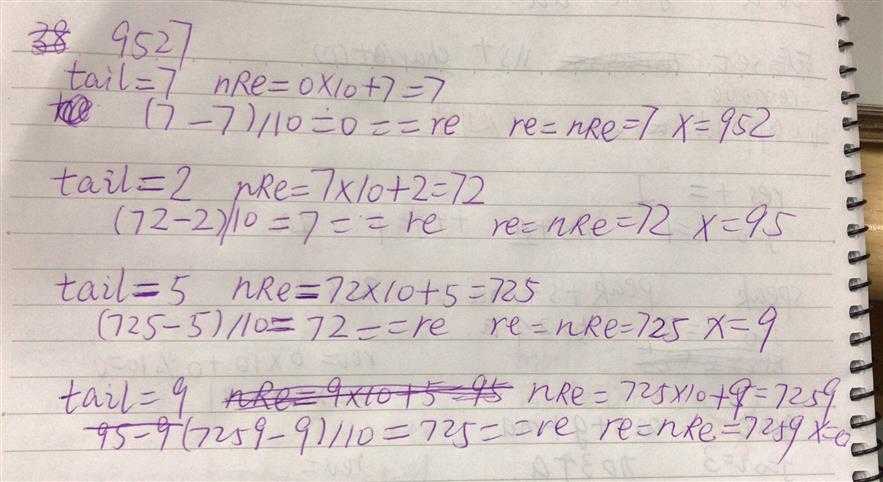 38 9527
tail=7 nRe=0X10+7=7
(7-7)/10=0==re re=nRe=7 X=952
tail=2 nRe=7X10+2=72
(72-2)/10=7==re re=nRe=72 X=95
tail=5 nRe=72X10+5=725
(725-5)/10=72==re re=nRe=725 X=9
tail=9 nRe=9X10+5=95 nRe=725X10+9=7259
95-9 (7259-9)/10=725==re re=nRe=7259 X=0